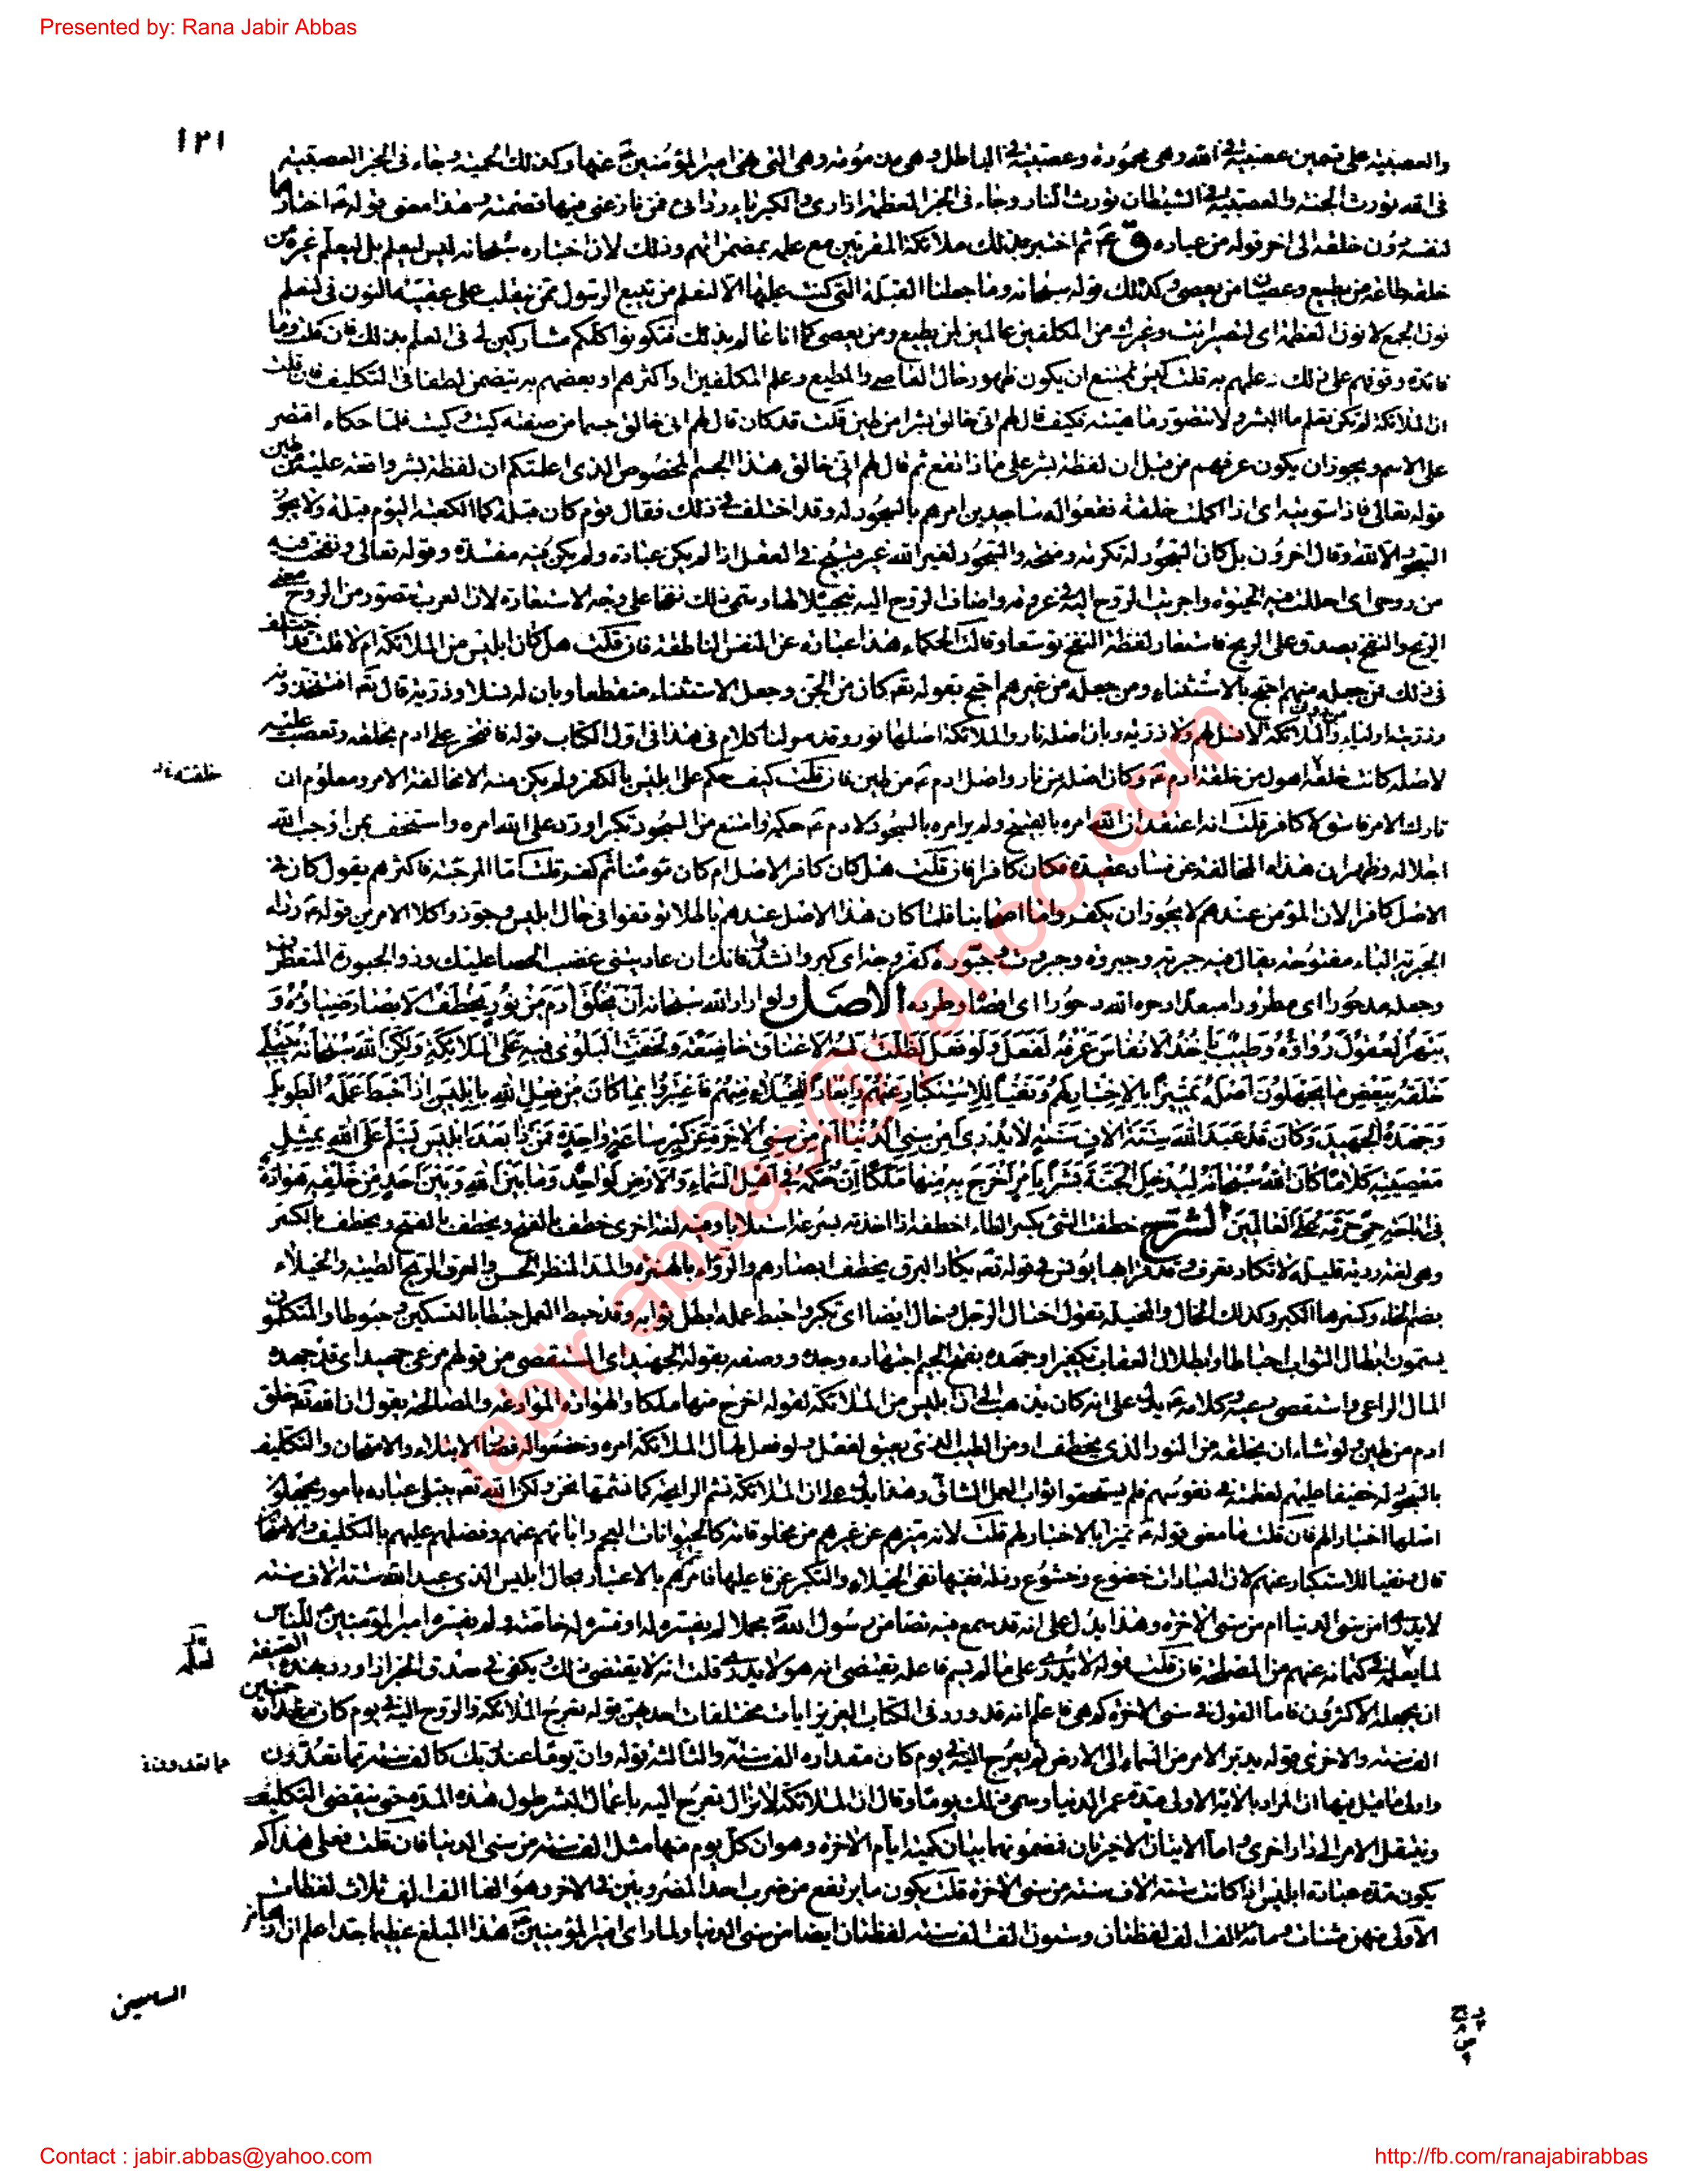 Presented by: Rana Jabir Abbas
١٢١
والعصبية على قسمين عصبية في الله وهي محمودة وعصبية في الباطل وهي مذمومة وهي التي نهى امير المؤمنين ع عنها وكذلك الحمية وجاء في الخبر العصبية
في الله تورث الجنة والعصبية في الشيطان تورث النار وجاء في الخبر العظمة ازاري والكبرياء ردائي فمن نازعني فيهما قصمته وهذا معنى قوله ع اختارهما
لنفسه دون خلقه الى اخر قوله من عباده ق ع ثم اختبر بذلك ملائكته المقربين مع علمه بمضمراتهم وذلك لان اختباره سبحانه ليس ليعلم بل ليعلم غيره من
خلقه طاعة من يطيع وعصيان من يعصي وكذلك قوله سبحانه وما جعلنا القبلة التي كنت عليها الا لنعلم من يتبع الرسول ممن ينقلب على عقبيه النون في لنعلم
نون الجمع لا نون العظمة اي لتصير انت وغيرك من المكلفين عالمين لمن يطيع ومن يعصي كما انا عالم بذلك فتكونوا كلكم مشاركين لي في العلم بذلك فان قلت وما
فائدة وقوفهم على ذلك وعلمهم به قلت ليس بممتنع ان يكون ظهور حال العاصي والمطيع وعلم المكلفين او اكثرهم او بعضهم به يتضمن لطفا في التكليف فان قلت
ان الملائكة لم تكن تعلم ما البشر ولا تتصور ماهيته فكيف قال لهم اني خالق بشرا من طين قلت قد كان قال لهم اني خالق جسما من صفته كيت وكيت فلما حكاه اقتصر
على الاسم ويجوز ان يكون عرفهم من قبل ان لفظة بشر على ماذا تقع ثم قال لهم اني خالق هذا الجسم المخصوص الذي اعلمتكم ان لفظة بشر واقعة عليه من طين
قوله تعالى فاذا سويته اي اذا اكملت خلقه فقعوا له ساجدين امرهم بالسجود له وقد اختلف في ذلك فقال قوم كان قبلة كما الكعبة اليوم قبلة ولا يجوز
السجود الا لله وقال اخرون بل كان السجود له تكرمة ومحنة والسجود لغير الله غير قبيح في العقل اذا لم يكن عبادة ولم يكن فيه مفسدة وقوله تعالى ونفخت فيه
من روحي اي احللت فيه الحيوة واجريت الروح اليه في عروقه واضاف الروح اليه تبجيلا لها وسمى ذلك نفخا على وجه الاستعارة لان العرب تتصور من الروح معنى
الريح والنفخ يصدق على الريح فاستعار لفظة النفخ توسعا وقالت الحكماء هذا عبارة عن النفس الناطقة فان قلت هل كان ابليس من الملائكة ام لا قلت قد اختلف
في ذلك فمن جعله منهم احتج بالاستثناء ومن جعله من غيرهم احتج بقوله تع كان من الجن وجعل الاستثناء منقطعا وبان له نسلا وذرية قال تع افتتخذونه
وذريته اولياء من دوني والملائكة لا نسل لهم ولا ذرية وبان اصله نار والملائكة اصلها نور وقد مر لنا كلام في هذا في اول الكتاب قوله فافتخر على ادم بخلقه وتعصب عليه
لاصله كانت خلقه اهون من خلقة ادم ع وكان اصله من نار واصل ادم ع من طين فان قلت كيف حكم على ابليس بالكفر ولم يكن منه الا مخالفة الامر ومعلوم ان
خلقته
تارك الامر فاسق لا كافر قلت انه اعتقد ان الله امره بالقبيح ولم ير امره بالسجود لادم ع حكمة وامتنع من السجود تكبرا ورد على الله امره واستخف بمن اوجب الله
اجلاله وظهر ان هذه المخالفة عن فساد عقيدة فكان كافرا فان قلت هل كان كافر الاصل ام كان مؤمنا ثم كفر قلت اما المرجئة فاكثرهم يقول كان في
الاصل كافرا لان المؤمن عندهم لا يجوز ان يكفر واما اصحابنا فلما كان هذا الاصل عندهم باطلا توقفوا في حال ابليس وجوزوا كلا الامرين قوله ع رداء
الجبرية الباء مفتوحة يقال فيه جبرية وجبروة وجبروت وجبورة كفروجة اي كبر وانشدوا فانك ان عاديتني غضب الحصا عليك وذو الجبورة المتغطرف
وجعله مدحورا اي مطرودا مبعدا دحره الله دحورا اي اقصاه وطرده الاصل ولو اراد الله سبحانه ان يخلق ادم من نور يخطف الابصار ضياؤه و
يبهر العقول رواؤه وطيب ياخذ الانفاس عرفه لفعل ولو فعل لظلت له الاعناق خاضعة ولخفت البلوى فيه على الملائكة ولكن الله سبحانه يبتلي
خلقه ببعض ما يجهلون اصله تمييزا بالاختبار لهم ونفيا للاستكبار عنهم وابعادا للخيلاء منهم فاعتبروا بما كان من فعل الله بابليس اذ احبط عمله الطويل
وجهده الجهيد وكان قد عبد الله ستة الاف سنة لا يدرى امن سني الدنيا ام من سني الاخرة عن كبر ساعة واحدة فمن ذا بعد ابليس يسلم على الله بمثل
معصيته كلا ما كان الله سبحانه ليدخل الجنة بشرا بامر اخرج به منها ملكا ان حكمه في اهل السماء والارض لواحد وما بين الله وبين احد من خلقه هوادة
في اباحة حمى حرمه على العالمين الشرح خطفت الشيء بكسر الطاء اخطفه اذا اخذته بسرعة استلابا وفيه لغة اخرى خطف بالفتح ويخطف بالفتح ويخطف بالكسر
وهي لغة رديئة قليلة لا تكاد تعرف وقد قرا بها يونس في قوله تع يكاد البرق يخطف ابصارهم والرواء بالهمز والمد المنظر الحسن والعرف الريح الطيبة والخيلاء
بضم الخاء وكسرها الكبر وكذلك الخال والمخيلة تقول اختال الرجل وخال ايضا اي تكبر واحبط عمله ابطل ثوابه وقد حبط العمل حبطا بالتسكين وحبوطا والمتكلمون
يسمون ابطال الثواب احباطا وابطال العقاب تكفيرا وجهده بفتح الجيم اجتهاده وجده ووصفه بقوله الجهيد اي المستقصى من قولهم مرعى جهيد اي قد جهده
المال الراعي واستقصى رعيه وكلامه ع يدل على انه كان يذهب الى ان ابليس من الملائكة لقوله اخرج منها ملكا والهوادة الموادعة والمصالحة يقول ان الله تع خلق
ادم من طين ولو شاء ان يخلقه من النور الذي يخطف او من الطيب الذي يعبق لفعل ولو فعل لهال الملائكة امره وخضعوا له فصار الابتلاء والامتحان والتكليف
بالسجود له خفيفا عليهم لعظمته في نفوسهم فلم يستحقوا ثواب العمل الشاق وهذا يدل على ان الملائكة تشم الرائحة كما نشمها نحن ولكن الله تع يبتلي عباده بامور يجهلون
اصلها اختبارا لهم فان قلت ما معنى قوله ع تمييزا بالاختبار لهم قلت لانه ميزهم عن غيرهم من مخلوقاته كالحيوانات العجم وابانهم عنهم وفضلهم عليهم بالتكليف والامتحان
قال ونفيا للاستكبار عنهم لان العبادات خضوع وخشوع وذلة ففيها نفي الخيلاء والتكبر عن فاعليها فامرهم بالاعتبار بحال ابليس الذي عبد الله ستة الاف سنة
لا يدرى امن سني الدنيا ام من سني الاخرة وهذا يدل على انه قد سمع فيه نصا من رسول الله ص مجملا لم يفسره له او فسره له خاصة ولم يفسره امير المؤمنين ع للناس
لما يعلمه في كتمانه عنهم من المصلحة فان قلت قوله لا يدرى على ما لم يسم فاعله يقتضي انه هو لا يدري قلت انه لا يقتضي ذلك ويكفي في صدق الخبر اذا ورد بهذه الصيغة
ان يجهله الاكثرون فاما القول في سني الاخرة كم هي فاعلم انه قد ورد في الكتاب العزيز ايات مختلفات احدهن قوله تعرج الملائكة والروح اليه في يوم كان مقداره خمسين
الف سنة والاخرى قوله يدبر الامر من السماء الى الارض ثم يعرج اليه في يوم كان مقداره الف سنة والثالثة قوله وان يوما عند ربك كالف سنة مما تعدون
مما تعدون
واولى ما قيل فيها ان المراد بالاية الاولى مدة عمر الدنيا وسمى ذلك يوما وقال ان الملائكة لا تزال تعرج اليه باعمال البشر طول هذه المدة حتى ينقضي التكليف
وينتقل الامر الى دار اخرى واما الايتان الاخيرتان فمضمونهما بيان كمية ايام الاخرة وهو ان كل يوم منها مثل الف سنة من سني الدنيا فان قلت فعلى هذا كم
يكون مدة عبادة ابليس اذا كانت ستة الاف سنة من سني الاخرة قلت يكون ما يرتفع من ضرب احد المضروبين في الاخر وهو الفا الف الف ثلاث لفظات
الاولى منهن مثناة ومائة الف الف لفظتان وستون الف الف سنة لفظتان ايضا من سني الدنيا ولما راى امير المؤمنين ع هذا المبلغ عظيما جدا علم ان اذهان
السامعين
Contact : jabir.abbas@yahoo.com
http://fb.com/ranajabirabbas
jabir.abbas@yahoo.com